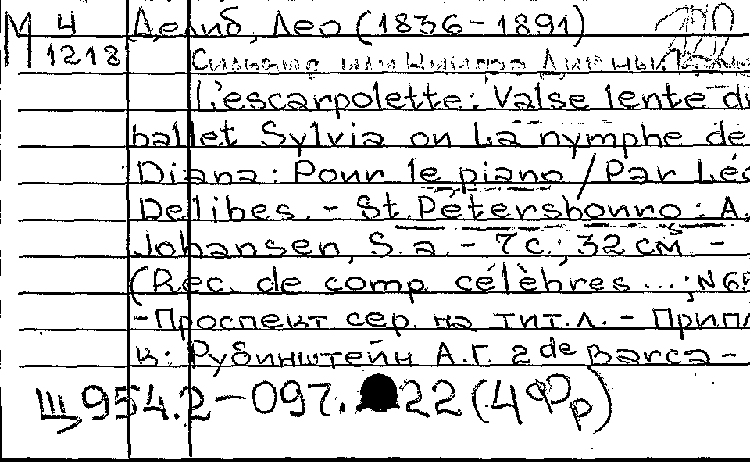 М 4 Делиб, Лео (1836-1891)
1218 Сильвия, или Нимфа Дианы
L'escarpolette: Valse lente du
ballet Sylvia ou La nymphe de
Diana: Pour le piano / Par Léo
Delibes. - St. Pétersbourg: A.
Johansen, S. a. - 7 c.; 32 см -
(Rec. de comp. célèbres ...; N 65
- Проспект сер. на тит. л. - Припл
к: Рубинштейн А.Г. 2de Barca -
Щ954.2-097. 22 (4Фр)